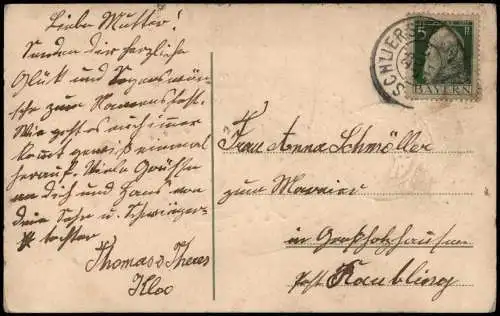 Liebe Mutter!
Senden dir herzliche
Glück und Segenswün-
sche zum Namensfest.
Wie geht es euch immer
kommt gewiß einmal
herauf. Viele Grüße
an dich und Hans von
dein Sohn u. Schwieger-
tochter
Thomas & Theres
Kloo
SCHLIERS
5 Pf
BAYERN
Frau Anna Schmöller
zum
in Großholzhausen
Post Raubling